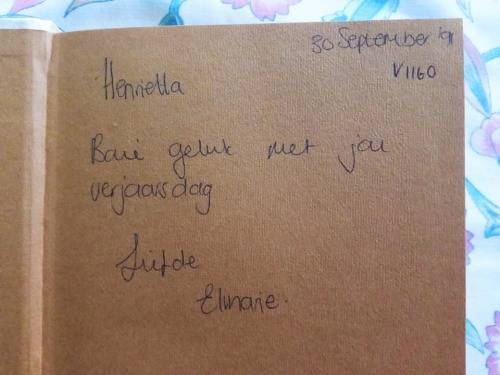 30 September '91
V1160
Henrietta
Baie geluk met jou
verjaarsdag
Liefde
Elmarie.